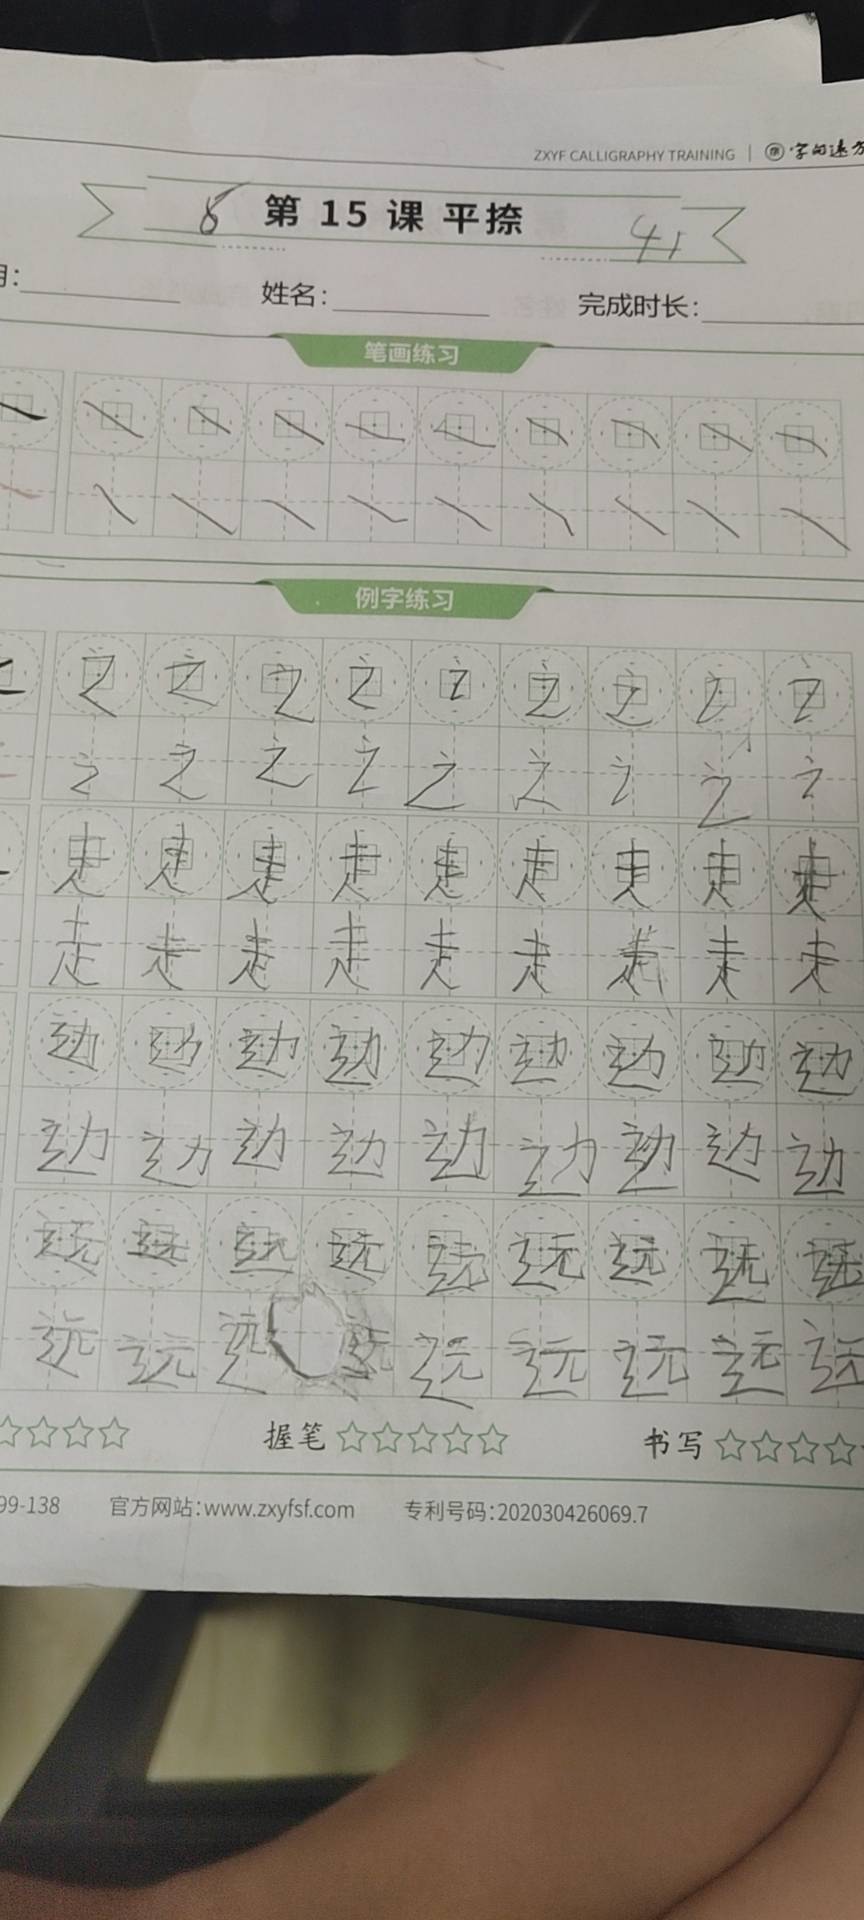 ZXYF CALLIGRAPHY TRAINING | 字的远方
8 第 15 课 平捺 41
姓名: 完成时长:
笔画练习
例字练习
之 之 之 之 之 之 之 之 之
之 之 之 之 之 之 之 之 之
走 走 走 走 走 走 走 走 走
走 走 走 走 走 走 走 走 走
边 边 边 边 边 边 边 边 边
边 边 边 边 边 边 边 边 边
远 远 远 远 远 远 远 远 远
远 远 远 远 远 远 远 远 远
握笔 ☆☆☆☆☆ 书写 ☆☆☆☆
99-138 官方网站:www.zxyfsf.com 专利号码:202030426069.7